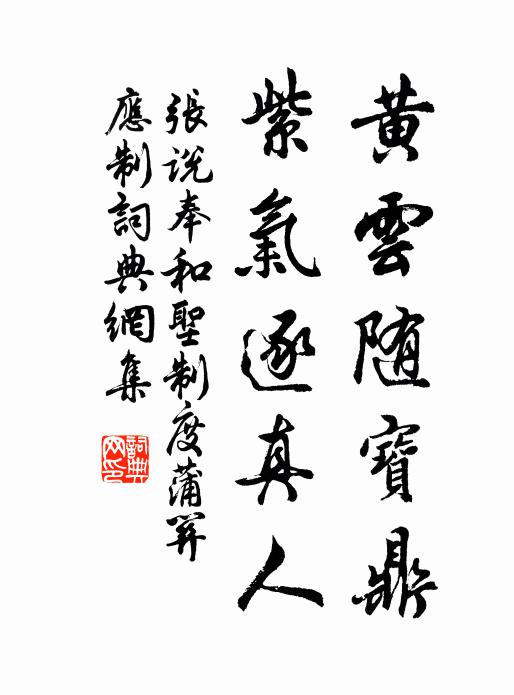 黃雲随寶鼎
紫氣逐真人
張說奉和聖制度蒲關
應制詞典網集
詞典网印